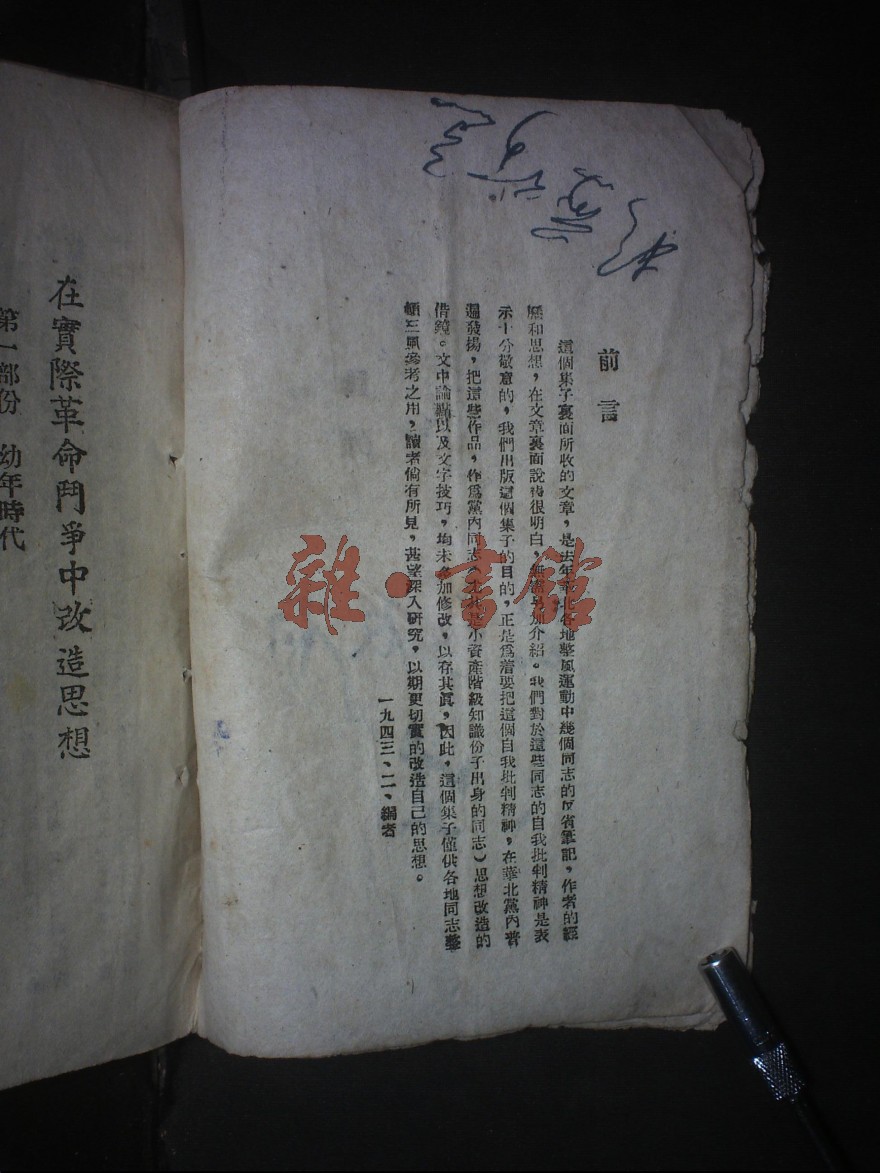 前言
這個集子裏面所收的文章，是去年華北各地整風運動中幾個同志的反省筆記，作者的經
歷和思想，在文章裏面說得很明白，無需另加介紹。我們對於這些同志的自我批判精神是表
示十分敬意的，我們出版這個集子的目的，正是爲着要把這個自我批判精神，在華北黨內普
遍發揚，把這些作品，作爲黨內同志（尤其是小資產階級知識份子出身的同志）思想改造的
借鏡。文中論點以及文字技巧，均未多加修改，以存其眞，因此，這個集子僅供各地同志整
頓三風參考之用，讀者倘有所見，甚望深入研究，以期更切實的改造自己的思想。
一九四三、二、編者
在實際革命鬥爭中改造思想
第一部份 幼年時代
雜·書館